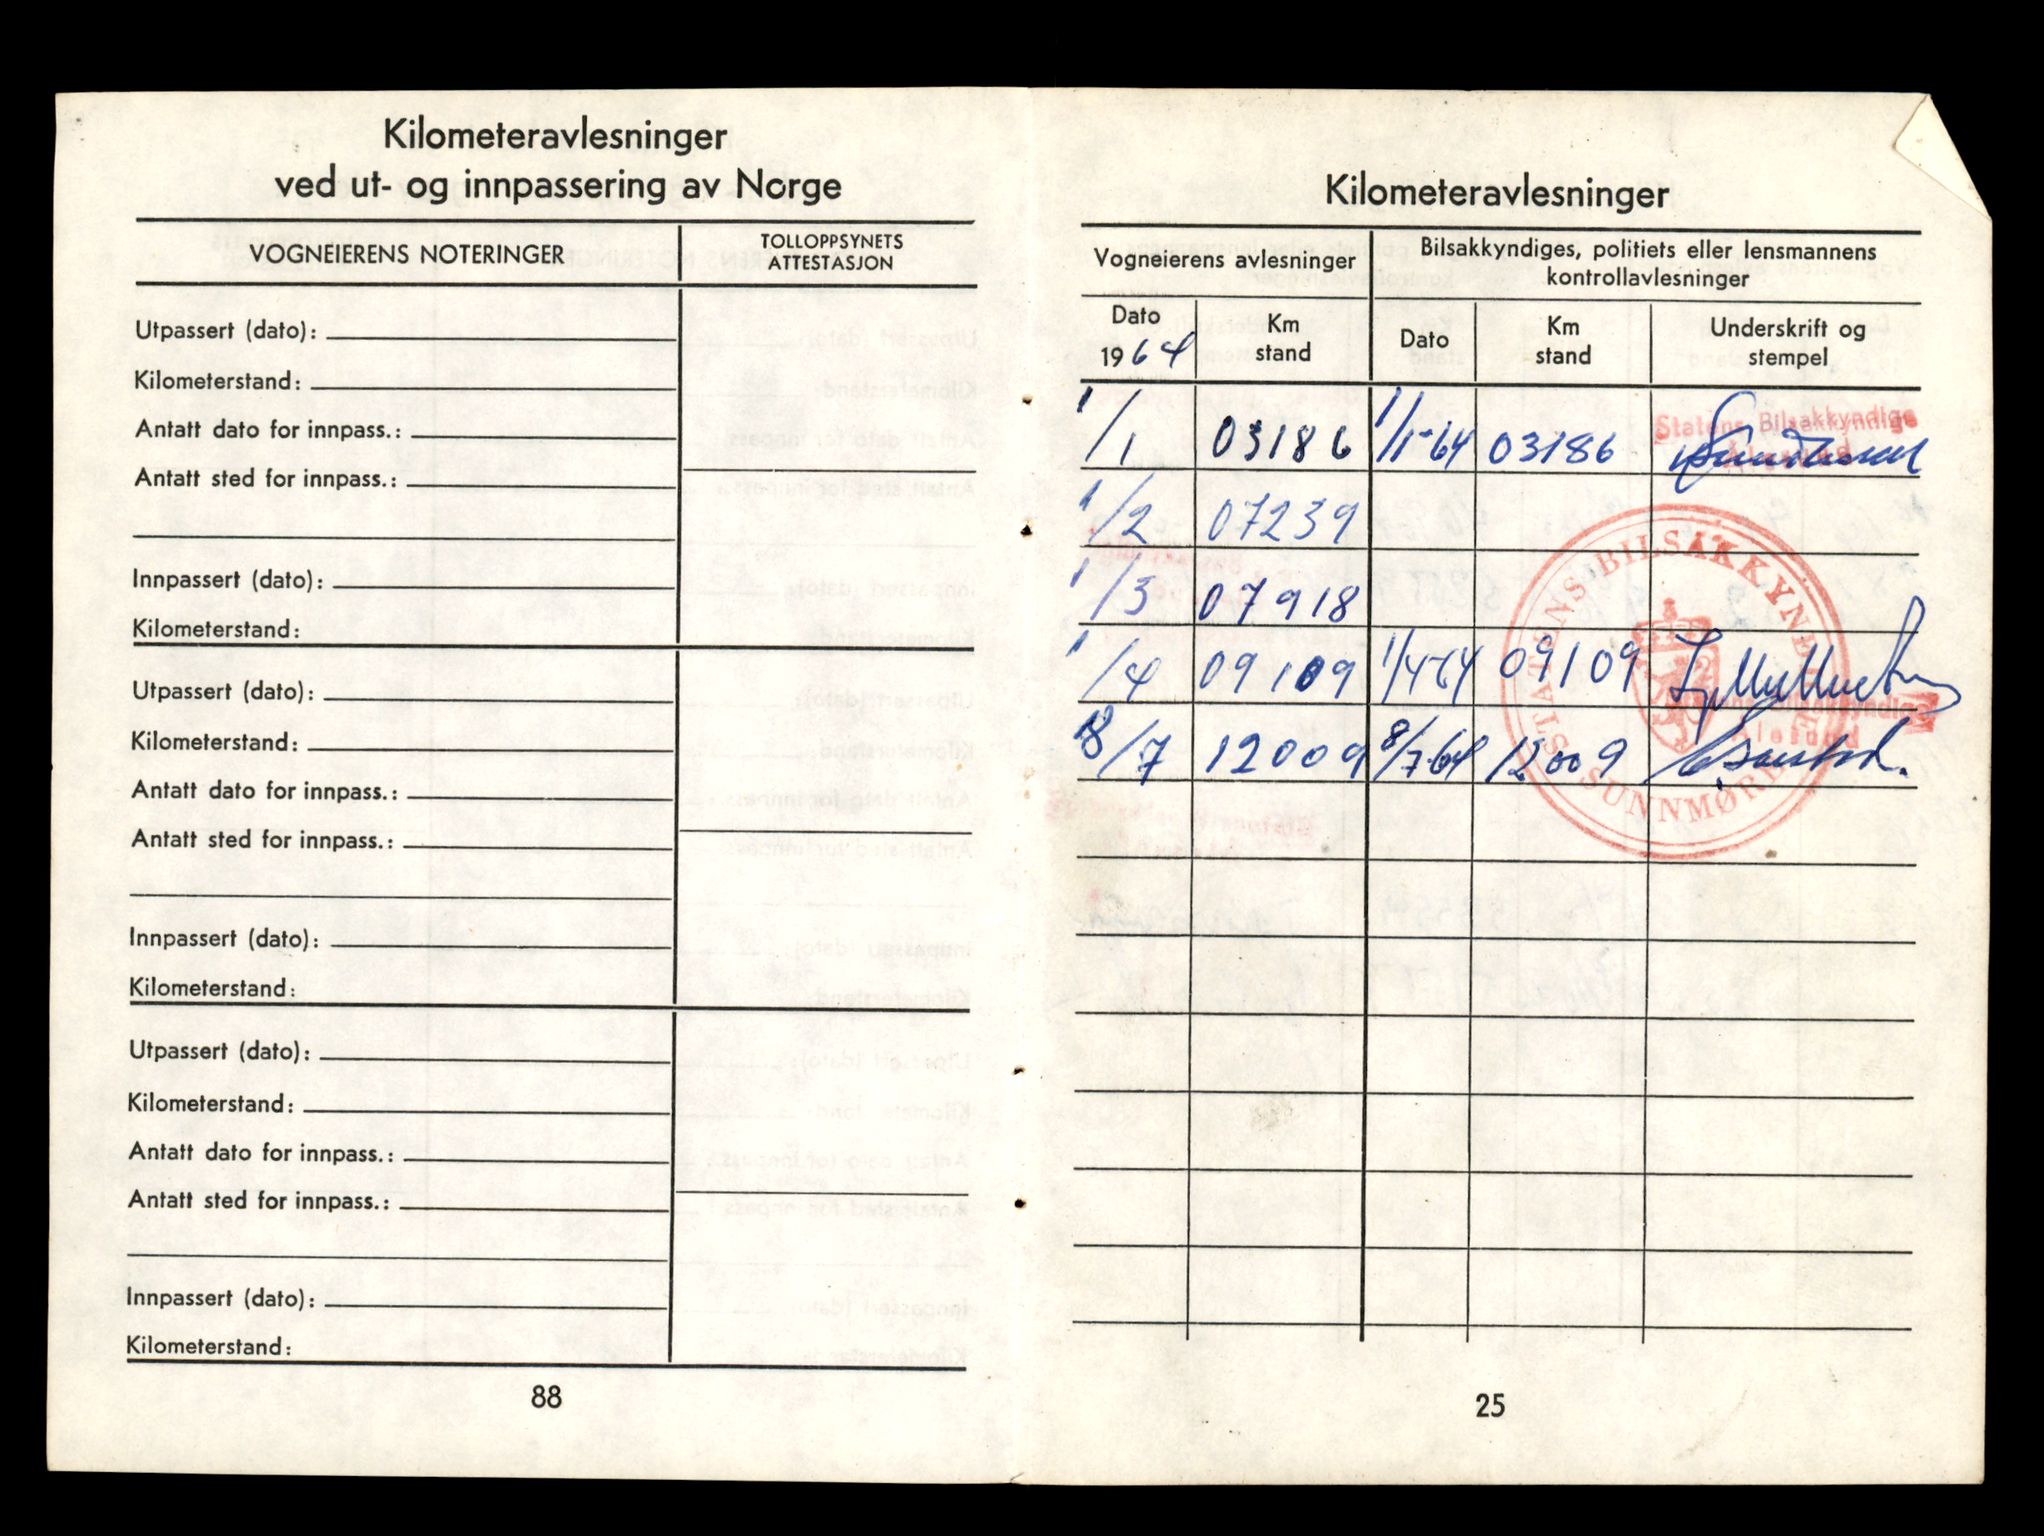 Kilometeravlesninger
ved ut- og innpassering av Norge
VOGNEIERENS NOTERINGER
TOLLOPPSYNETS
ATTESTASJON
Utpassert (dato):
Kilometerstand:
Antatt dato for innpass.:
Antatt sted for innpass.:
Innpassert (dato):
Kilometerstand:
Utpassert (dato):
Kilometerstand:
Antatt dato for innpass.:
Antatt sted for innpass.:
Innpassert (dato):
Kilometerstand:
Utpassert (dato):
Kilometerstand:
Antatt dato for innpass.:
Antatt sted for innpass.:
Innpassert (dato):
Kilometerstand:
88
Kilometeravlesninger
Vogneierens avlesninger
Bilsakkyndiges, politiets eller lensmannens
kontrollavlesninger
Dato
1964
Km
stand
Dato
Km
stand
Underskrift og
stempel
1/1 03186 1/1-64 03186
Statens Bilsakkyndige
1/2 07239
1/3 07918
1/4 09109 1/4-64 09109
8/7 12009 8/7-64 12009
Statens Bilsakkyndige
Ålesund
STATENS BILSAKKYNDIGE
SUNNMØRE
25